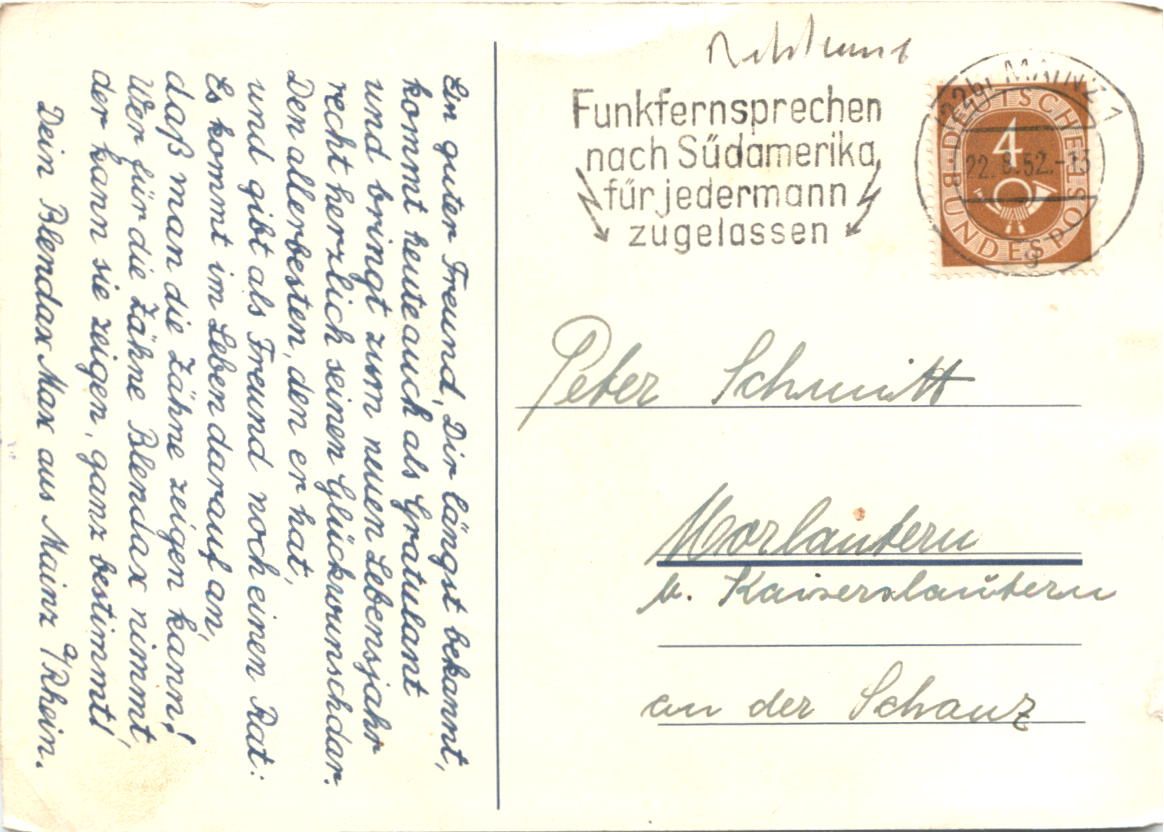 Ein guter Freund, Dir längst bekannt,
kommt heute auch als Gratulant
und bringt zum neuen Lebensjahr
recht herzlich seinen Glückwunsch dar.
Den allerbesten, den er hat,
und gibt als Freund noch einen Rat:
Es kommt im Leben darauf an,
daß man die Zähne zeigen kann!
Wer für die Zähne Blendax nimmt,
der kann sie zeigen, ganz bestimmt!
Dein Blendax Max aus Mainz a/Rhein.
Funkfernsprechen
nach Südamerika
für jedermann
zugelassen
(22b) MAINZ 1
22.8.52.-13
g
DEUTSCHE
BUNDESPOST
4
Peter Schmitt
Morlautern
b. Kaiserslautern
an der Schanz